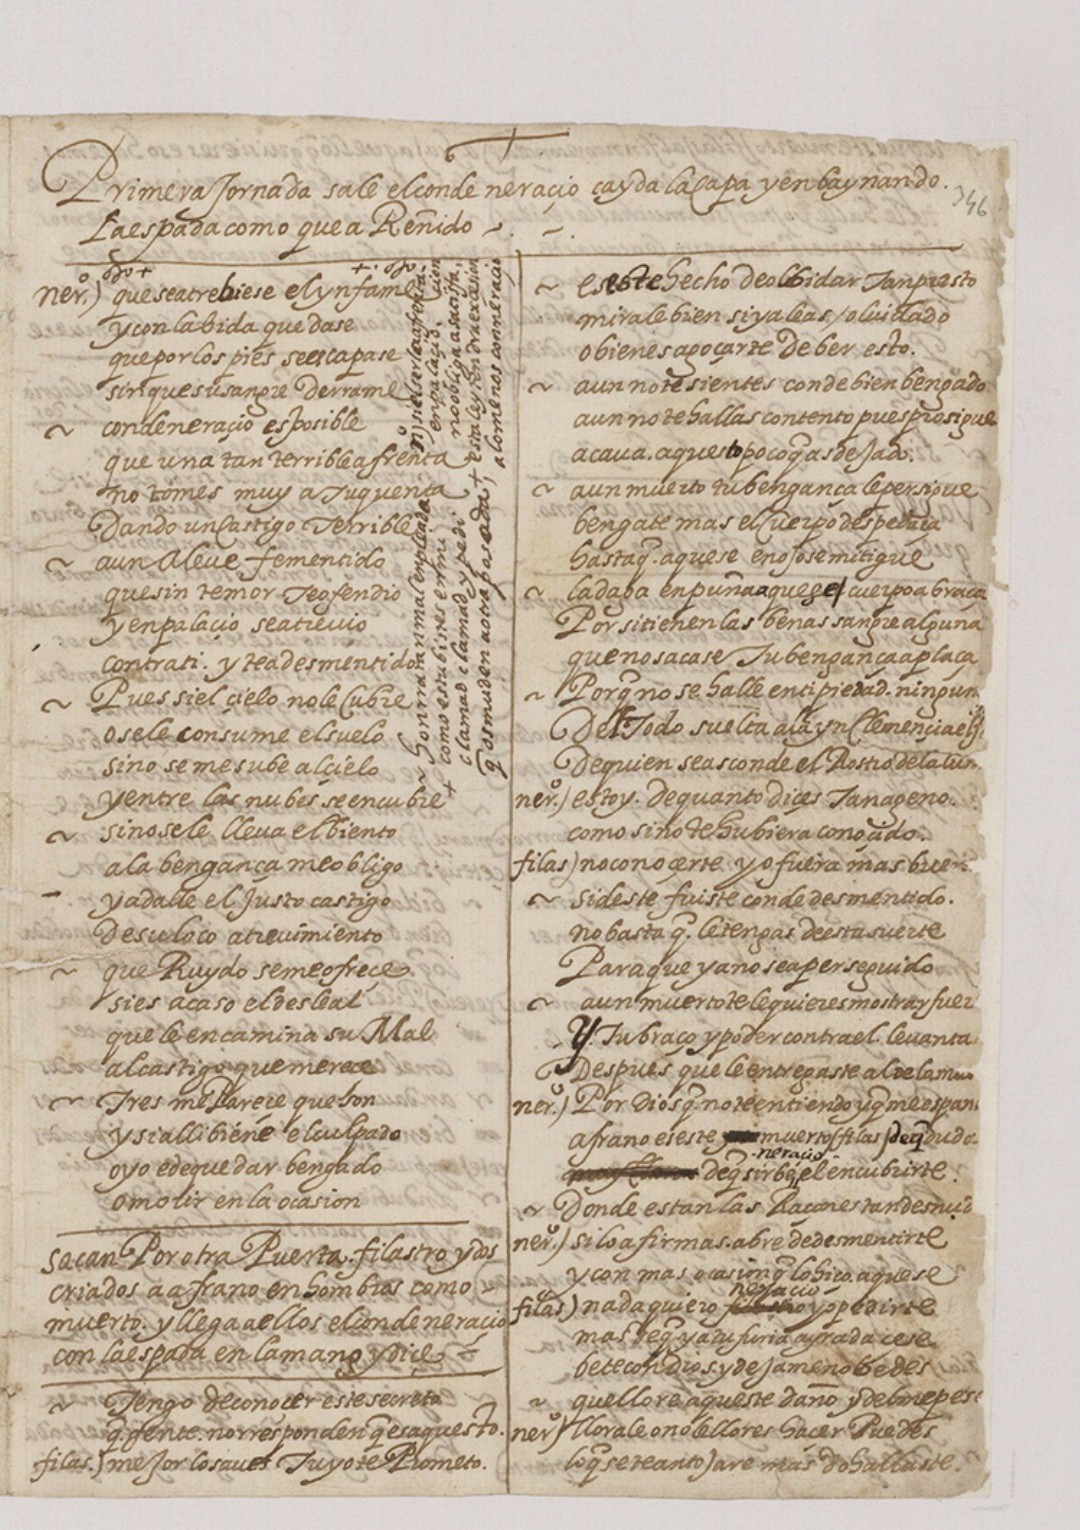 Primera Jornada sale el conde neraçio cayda la capa y enbaynando.
346
la espada como que a Reñido
nero.) que se atrebiese el ynfame
y con la bida quedase
que por los pies se escapase
sin que su sangre derrame
conde neraçio es posible
que una tan terrible afrenta
no tomes muy a tu quenta
Dando un castigo terrible
a un aleue fementido
que sin temor te ofendio
y en palaçio se atreuio
contra ti. y te a desmentido
Pues si el çielo no le cubre
o se le consume el suelo
sino se me sube al çielo
y entre las nubes se encubre
sino se le lleua el biento
a la bengança me obligo
y a dalle el justo castigo
De su loco atreuimiento
que Ruydo se me ofreçe
si es acaso el desleal
que le encamina su Mal
al castigo que mereçe
Tres me Pareçe que son
y si alli biene el culpado
oyo e de quedar bengado
o morir en la ocasion
sacan Por otra Puerta. filastro y dos
criados a afrano en hombros como
muerto. y llega a ellos el conde neraçio
con la espada en la mano y dice
Tengo de conocer este secreto
q. gente. no rresponden q es aquesto.
filas.) mejor lo saues tu yo te Prometo.
honrra tan mal enpleada
como estubistes en mi
clamad clamad y pedi
q os muden a otra posada
en palaçio.
no obliga a satisfa
esta ley tendra exçeçion
a lo menos con neraçio
es este hecho de olbidar tan presto
mirale bien si ya le as oluidado
o bienes a poçarte de ber esto.
aun no te sientes conde bien bengado
aun no te hallas contento pues prosigue
acaua. aquesto poco q as dejado.
aun muerto tu bengança le persigue
bengate mas el cuerpo despedaça
hasta q. aquese enojo se mitigue
la daga enpuña aquese cuerpo abraça
Por si tienen las benas sangre alguna
que no sacase tu bengança a plaça
Porq no se halle en ti piedad. ningun
Del todo suelta a la ynclemençia el
De quien se asconde el Rostro de la lun
nero.) estoy. de quanto dices tan ageno.
como si no te hubiera conoçido.
filas) no conocerte yo fuera mas buen
si deste fuiste conde desmentido.
no basta q. le tengas de esta suerte
Para que ya no sea perseguido
aun muerto te le quieres mostrar fuer
y. tu braço y poder contra el leuanta
Despues que le entregaste al de la mu
nero.) Por dios q. no te entiendo y q me espan
afrano es este muerto (filas) deq dudo
neraçio
de q sirbe el encubrirte.
Donde estan las Raçones tan desnu
nero.) si lo afirmas. abre de desmentirte
y con mas ocasion q lo hiço. aquese
neraçio
filas) nada quiero yo pedirte
mas de q ya tu furia ayrada cese
bete con dios y dejame no bedes
que llore aqueste daño y del me pese
nero) llorale o no le llores haçer Puedes
lo q se te antojare mas do hallaste.